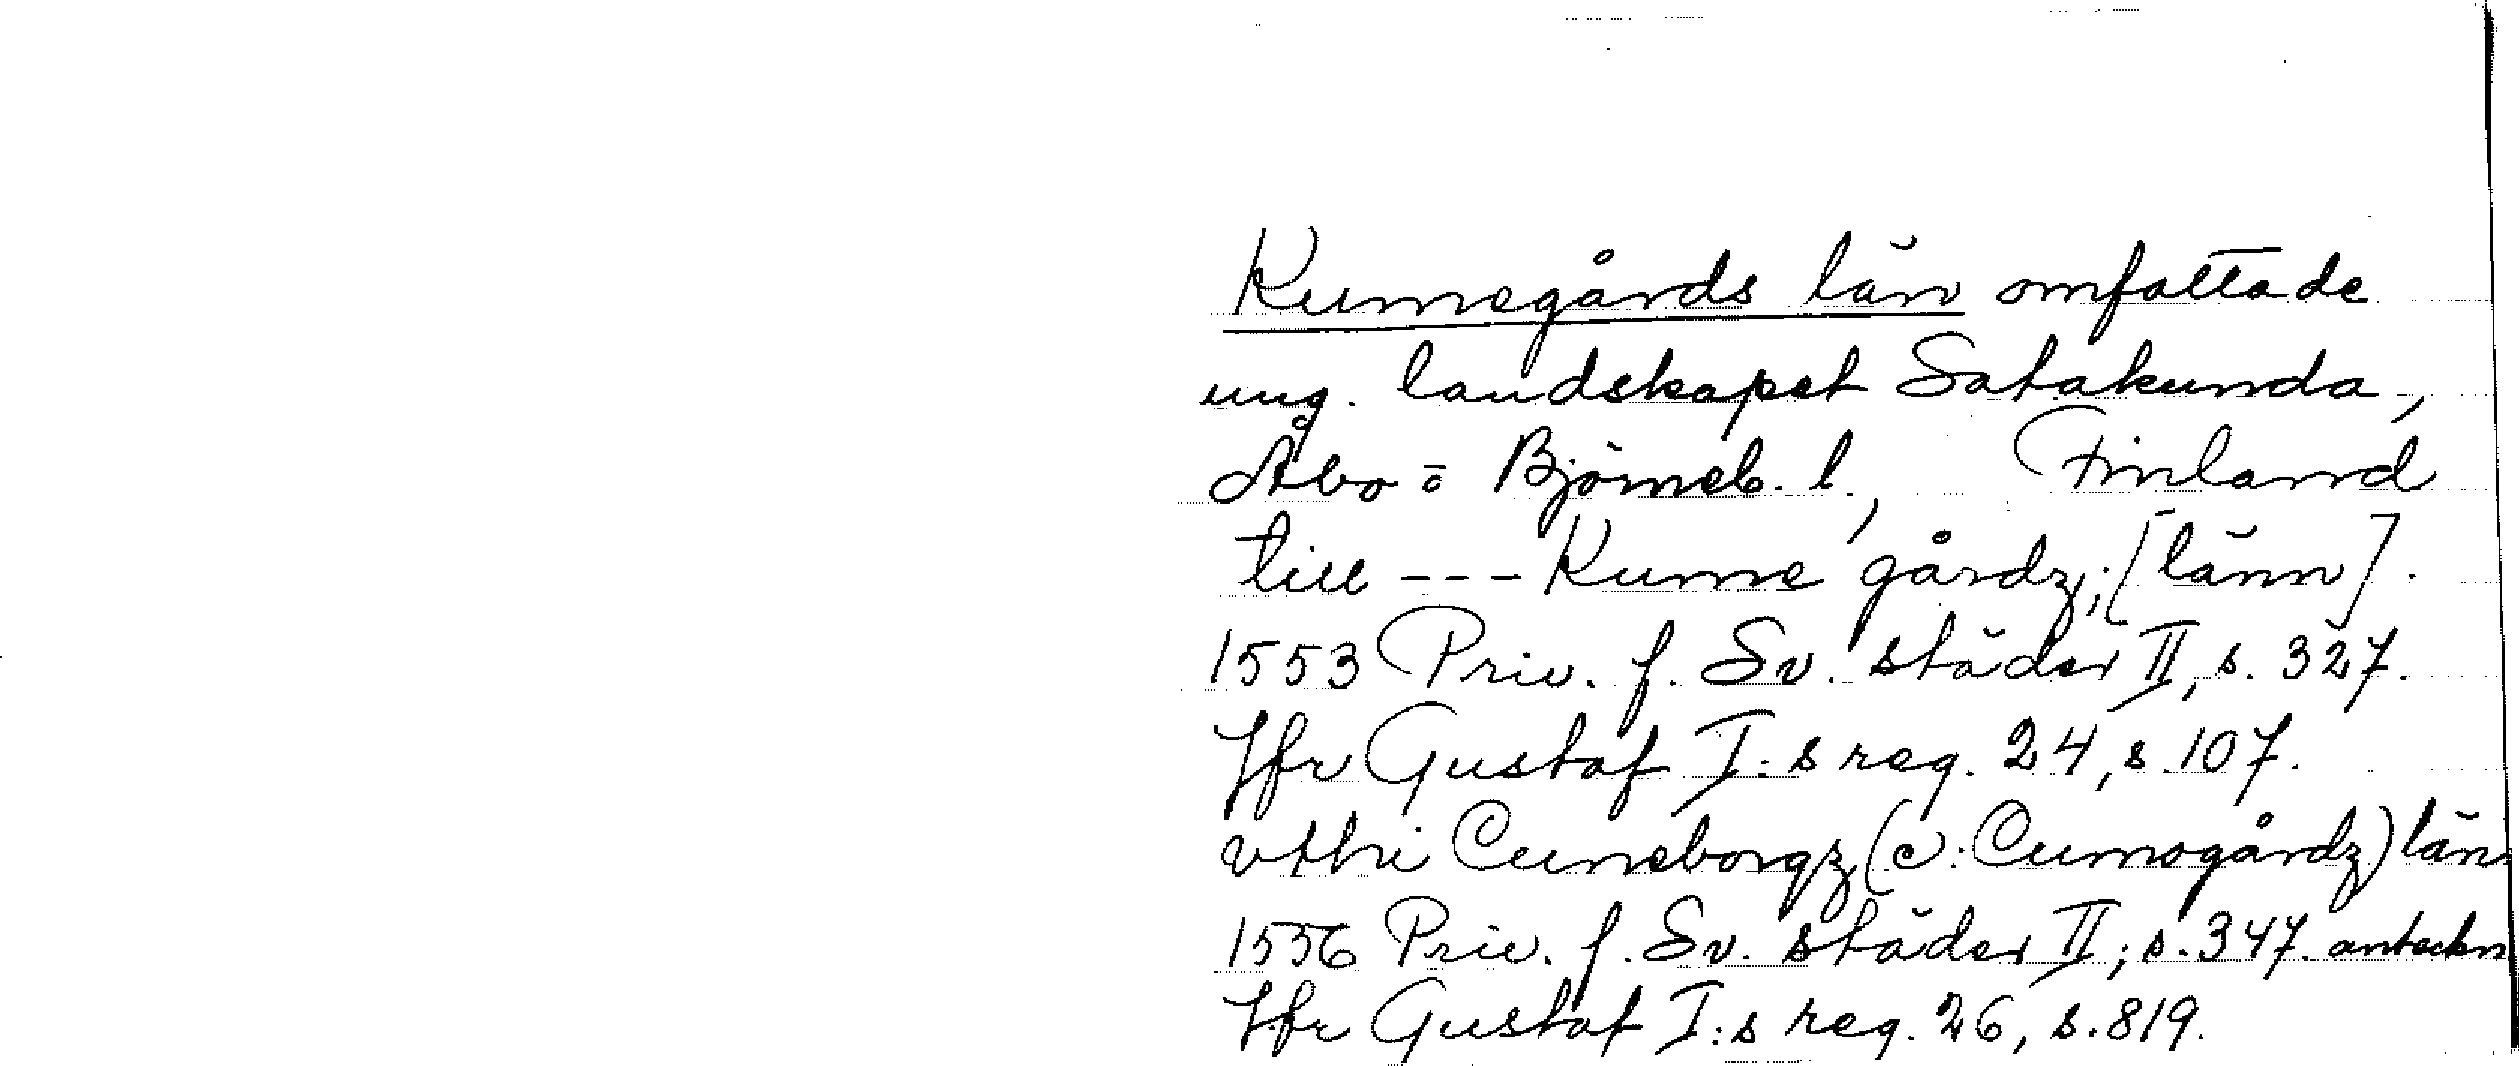 Kumegårds län omfattade
ung. landskapet Satakunda,
Åbo o Björneb. l., Finland
till --- Kume gårdz; [länn].
1553 Priv. f. Sv. städer II, s. 327.
Jfr Gustaf I:s reg. 24, s. 107.
vthi Cumeborgz (ɔ: Cumogårdz) län
1556 Priv. f. Sv. städer II; s. 347. anteckn
Jfr Gustaf I:s reg. 26, s. 819.